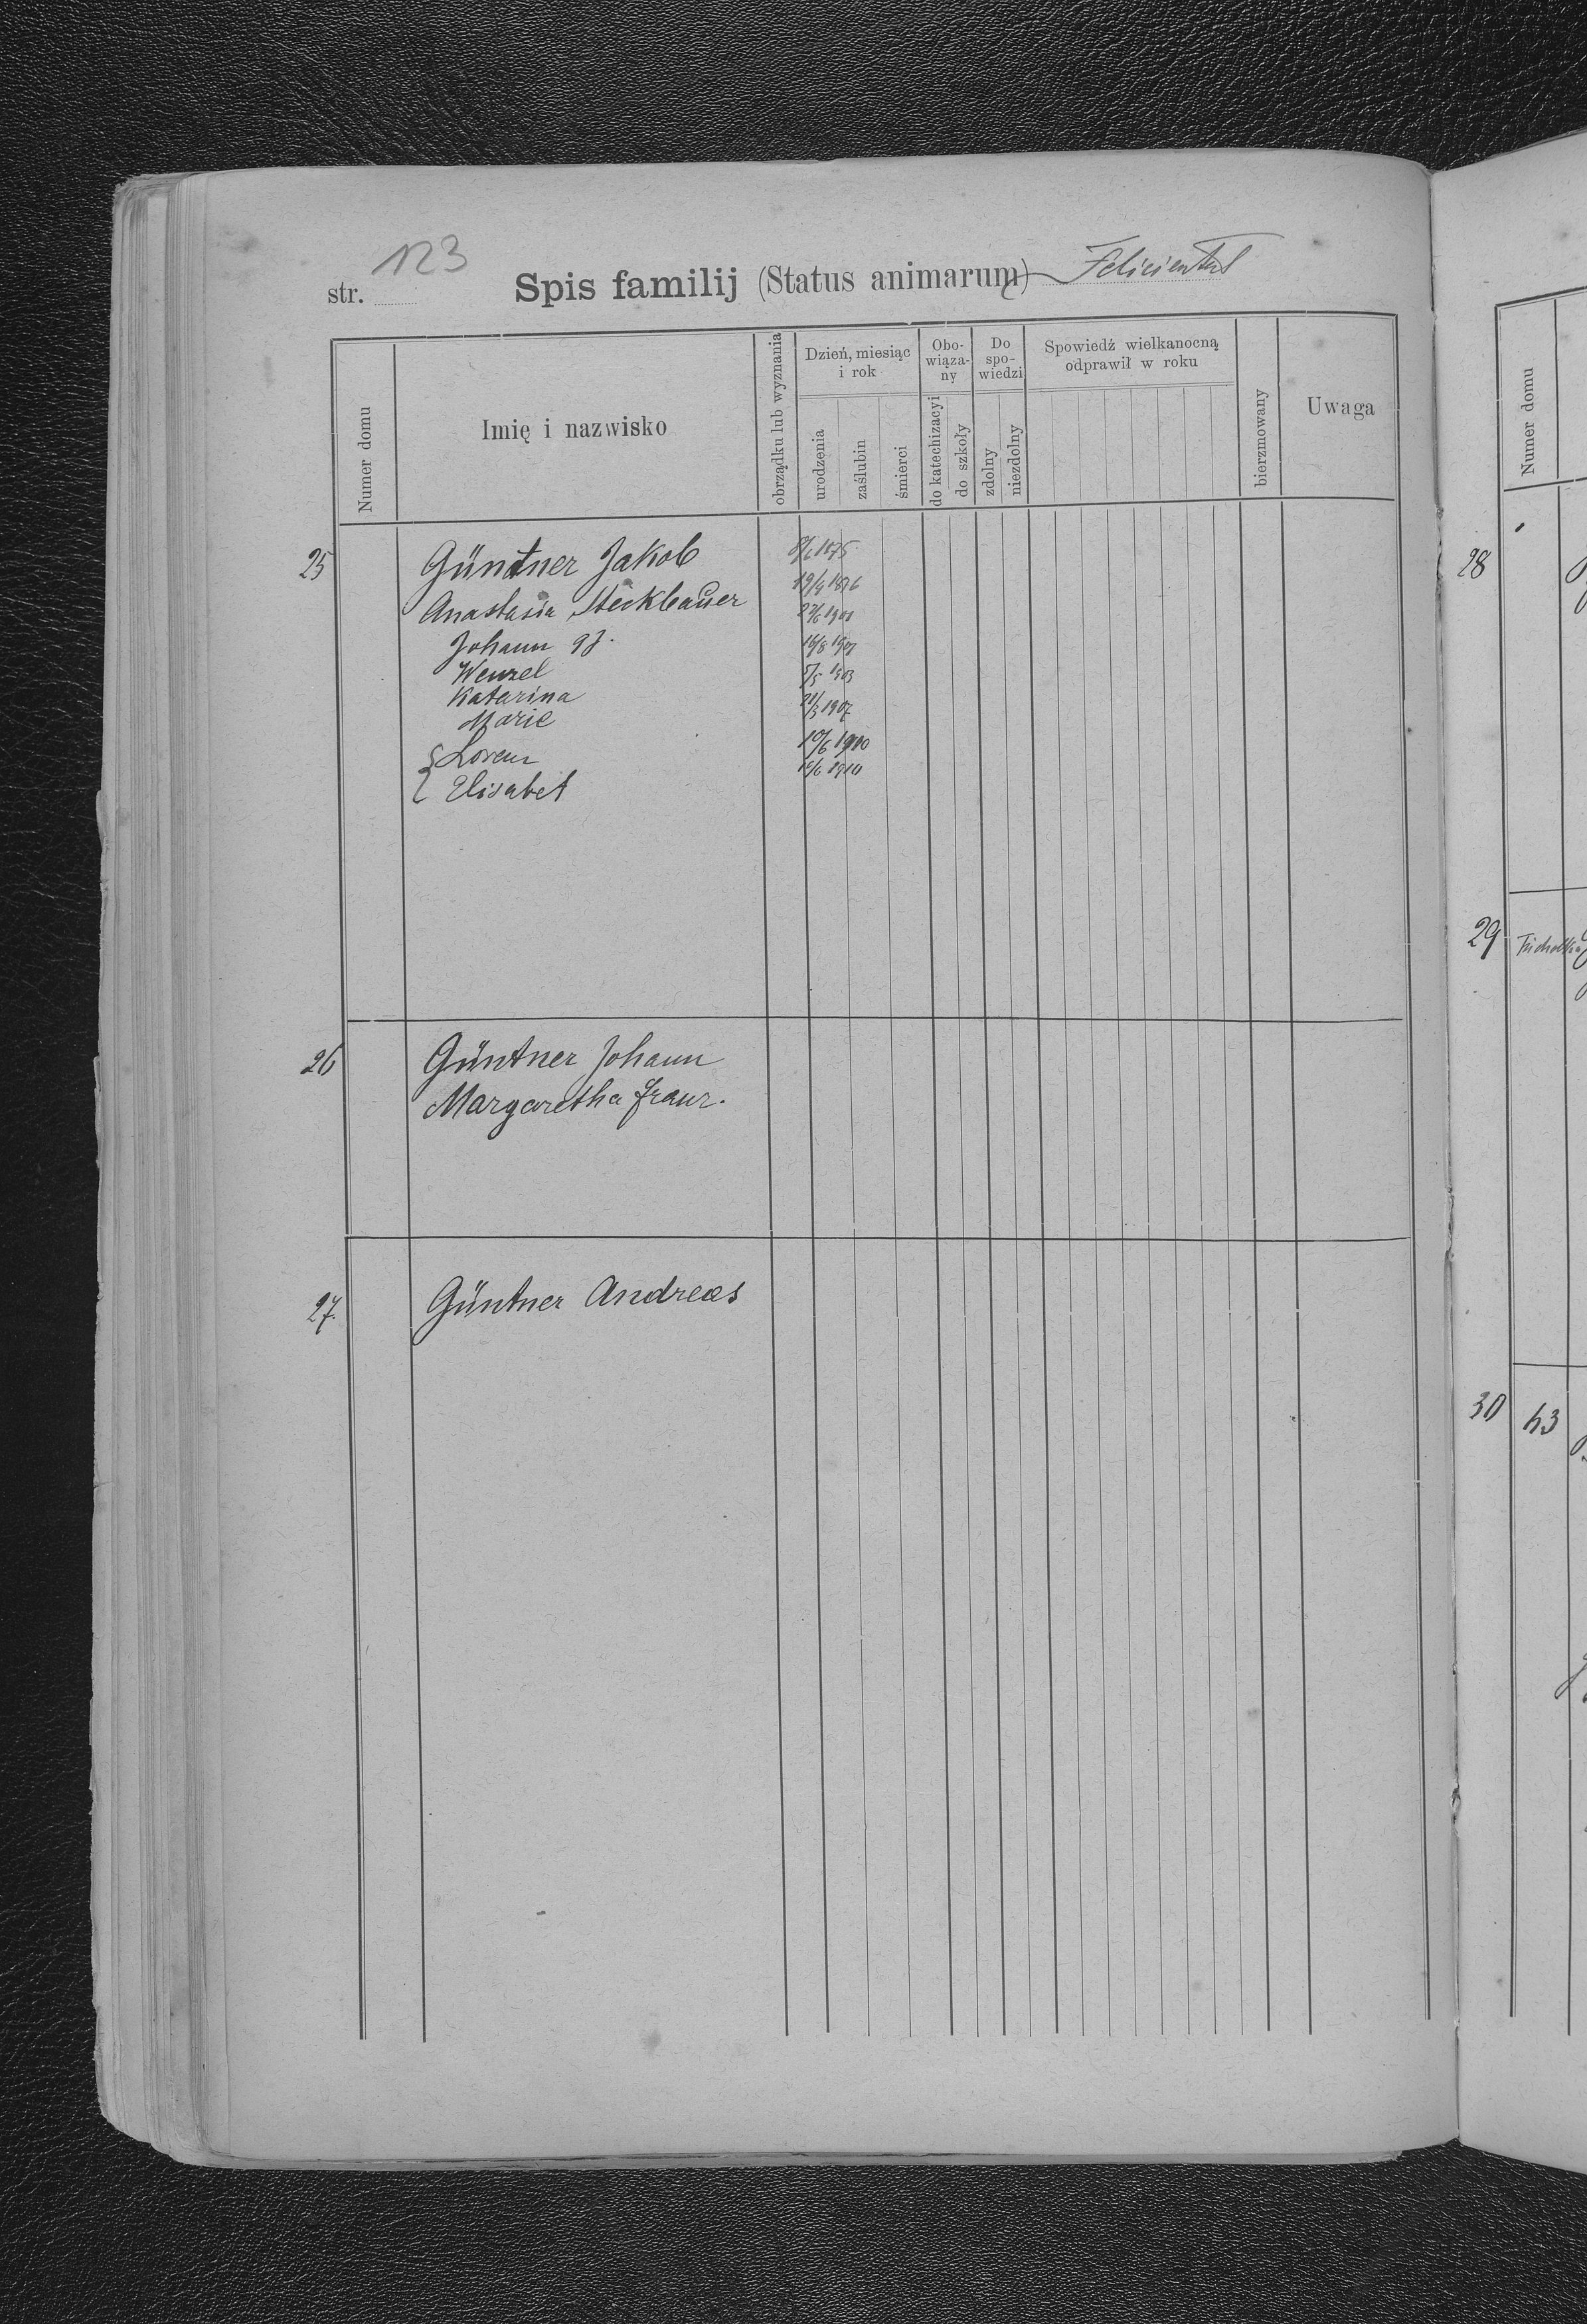 123
str. Spis familij (Status animarum) Felicienthal
Numer domu
Imię i nazwisko
obrządku lub wyznania
Dzień, miesiąc i rok
urodzenia
zaślubin
śmierci
Obo-wiąza-ny
do katechizacyi
do szkoły
Do spo-wiedzi
zdolny
niezdolny
Spowiedź wielkanocną odprawił w roku
bierzmowany
Uwaga
25 Güntner Jakob 1875
Anastasia Steckbauer 19/4 1876
Johann 27/6 1901
Wenzel 16/8
Katarina 1903
Marie 21/3 1907
Lorenz 10/6 1910
Elisabet 10/6 1910
26 Güntner Johann
Margaretha
27. Güntner Andreas
Numer domu
28
29
30 43